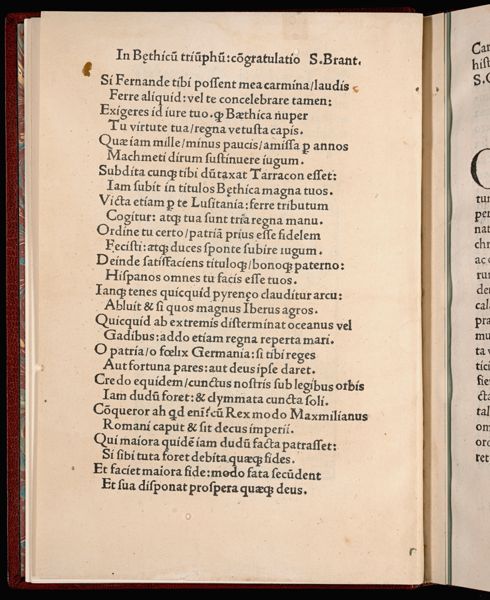 In Bęthicū triūphū: cōgratulatio S. Brant.
Si Fernande tibi possent mea carmina/laudis
Ferre aliquid: vel te concelebrare tamen:
Exigeres id iure tuo. ꝙ Bæthica nuper
Tu virtute tua/regna vetusta capis.
Quæ iam mille/minus paucis/amissa ꝑ annos
Machmeti dirum sustinuere iugum.
Subdita cunqꝫ tibi dūtaxat Tarracon esset:
Iam subit in titulos Bęthica magna tuos.
Victa etiam ꝑ te Lusitania: ferre tributum
Cogitur: atqꝫ tua sunt tria regna manu.
Ordine tu certo/patriā prius esse fidelem
Fecisti: ætqꝫ duces sponte subire iugum.
Deinde satisfaciens tituloqꝫ/bonoqꝫ paterno:
Hispanos omnes tu facis esse tuos.
Ianqꝫ tenes quicquid pyrenęo clauditur arcu:
Abluit & si quos magnus Iberus agros.
Quicquid ab extremis disterminat oceanus vel
Gadibus: addo etiam regna reperta mari.
O patria/o fœlix Germania: si tibi reges
Aut fortuna pares: aut deus ipse daret.
Credo equidem/cunctus nostris sub legibus orbis
Iam dudū foret: & clymmata cuncta soli.
Cōqueror ah qd Rex modo Maxmilianus
Romani caput & sit decus imperii.
Qui maiora quidē iam dudū facta patrasset:
Si sibi tuta foret debita quæqꝫ fides.
Et faciet maiora fide: modo fata secūdent
Et sua disponat prospera quæqꝫ deus.
Car
hist
S. C
C
tur
per
nat
chr
ac c
rur
de
cal
pra
mu
ta v
tici
fie
cta
tal
om
orc
ret